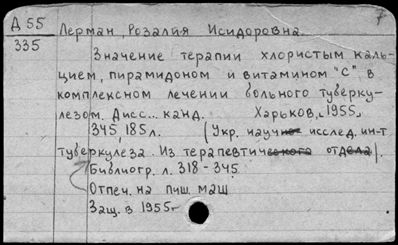 7
Д 55 Лерман, Розалия Исидоровна.
335
Значение терапии хлористым каль-
цием, пирамидоном и витамином "С" в
комплексном лечении больного туберку-
лезом. Дисс... канд. Харьков, 1955,
345, 185 л. (Укр. научн исслед. ин-т
туберкулеза. Из терапевтического отдела).
Библиогр. л. 318-345.
Отпеч. на пиш. маш
Защ. в 1955г